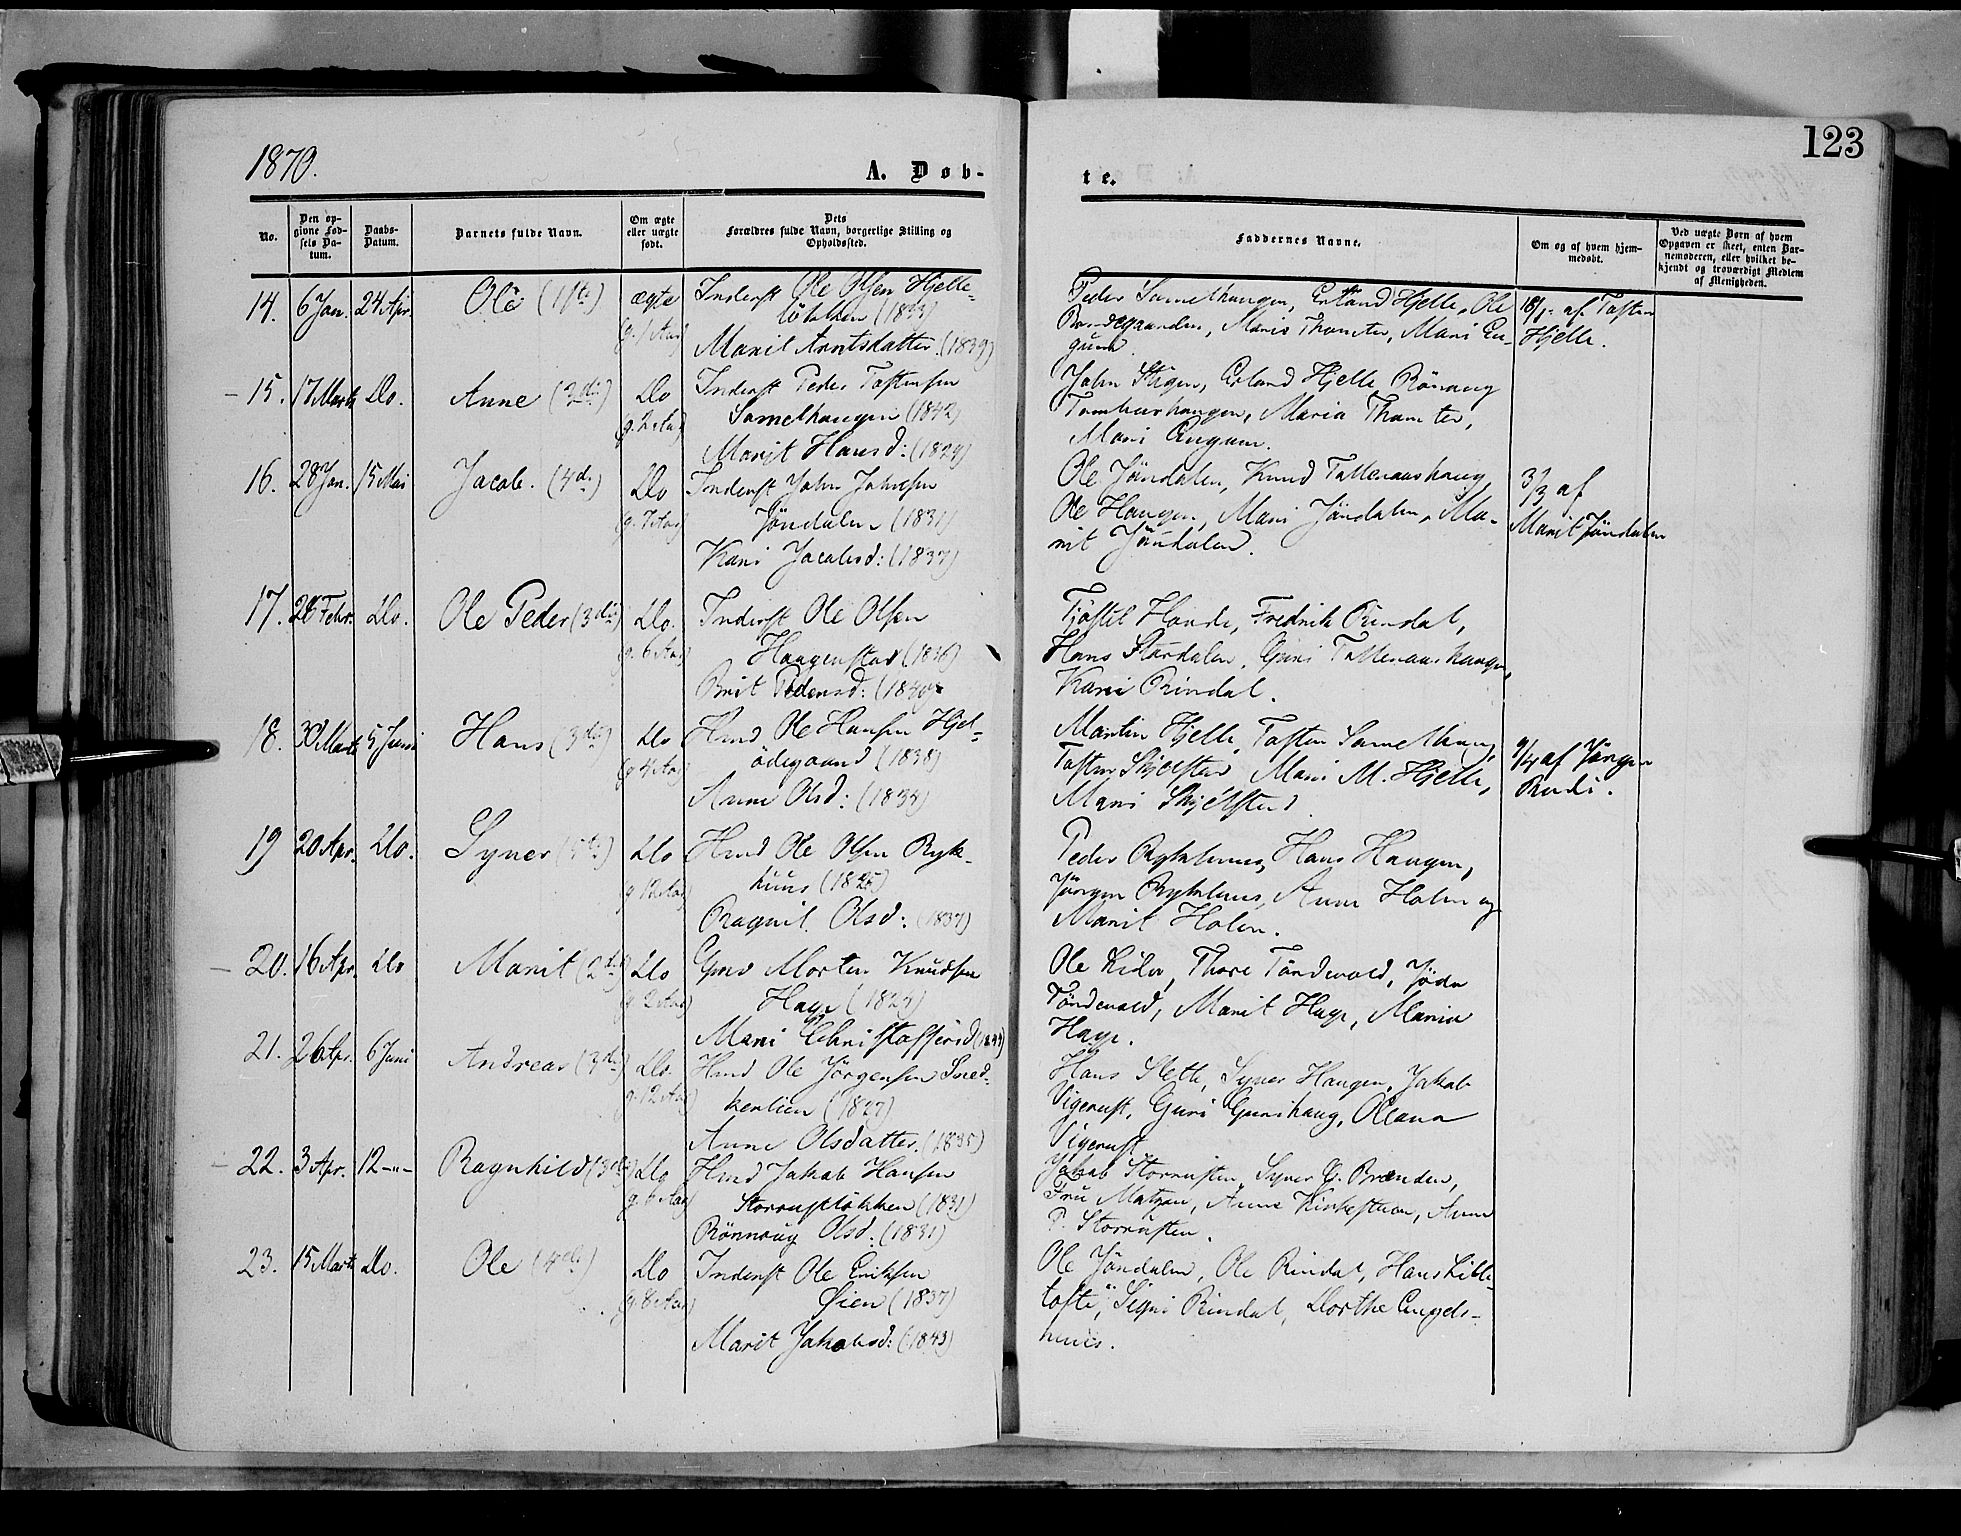 1870.
A. Døb-
te.
123
No.
Den op-
givne Fød-
sels Da-
tum.
Daabs-
Datum.
Barnets fulde Navn.
Om ægte
eller uægte
født.
Dets
Forældres fulde Navn, borgerlige Stilling og
Opholdssted.
Faddernes Navne.
Om og af hvem hjem-
medøbt.
Ved uægte Børn af hvem
Opgaven er skeet, enten Bar-
nemoderen, eller hvilket be-
kjendt og troværdigt Medlem
af Menigheden.
14. 6 Jan. 24 Apr. Ole (1ste) ægte Inderst Ole Olsen Hjelle-
løkken (1833)
(g. 1 Aar) Marit Arntsdatter (1839)
Peder Samelhaugen, Erland Hjelle, Ole
Maria Thomter, Mari En-
gum.
18/1 af Tosten
Hjelle.
15. 17 Marts Do. Anne (3die) Do Inderst Peder Tostensen
(g. 2 Aar) Samelhaugen (1842)
Marit Hansd: (1829)
John Stigen, Erland Hjelle, Rönnaug
Tamburhaugen, Maria Thomter,
Mari Engum.
16. 28 Jan. 15 Mai Jacob. (4de) Do Inderst John Johnsen
(g. 7 Aar) Jöndalen (1831)
Kari Jacobsd: (1837)
Ole Jöndalen, Knud Talleraashaug,
Ole Haugen, Mari Jöndalen, Ma-
rit Jöndalen.
3/3 af
Marit Jöndalen
17. 26 Febr. Do. Ole Peder (3die) Do. Inderst Ole Olsen
(g. 6 Aar) Haagenstad (1836)
Brit Pedersd: (1840)
Tjöstel Hande, Fredrik Rindal,
Hans Stordalen, Guri Talleraashaugen,
Kari Rindal.
18. 30 Marts 5 Juni Hans (3die) Do Hmd Ole Hansen Hjel-
(g. 4 Aar) ödegaard (1838)
Anne Olsd: (1834)
Martin Hjelle, Tosten Samelhaug,
Tosten Skjelstad, Mari M. Hjelle,
Mari Skjelstad.
9/4 af Jörgen
Rudi.
19 20 Apr. Do. Syver (5te) Do Hmd Ole Olsen Ryk-
(g 12 Aar) huus (1825)
Ragnil Olsd: (1837)
Peder Rykhuus, Hans Haugen,
Jörgen Rykhuus, Anne Holen og
Marit Holen.
20. 16 Apr. Do Marit (2de) Do Gmd Morten Knudsen
(g. 2 Aar) Hage (1824)
Mari Christoffersd
Ole Lider, Thore Töndevold, Jöda
Töndevold, Marit Hage, Maria
Hage.
21. 26 Apr. 6 Juni Andreas (3die) Do. Hmd Ole Jörgensen Sned-
(g. 12 Aar) kerlien (1827)
Anne Olsdatter. (1835)
Hans Slette, Syver Haugen, Jakob
Vigerust, Guri Gurihaug, Oleana
Vigerust
22. 3 Apr. 12 -"- Ragnhild (3die) Do Hmd Jakob Hansen
(g. 6 Aar) Storrustløkken (1831)
Rönnaug Olsd: (1831)
Jakob Storrusten, Syver E. Brænden,
Fru Matzen, Anne Kirkestuen, Anne
P. Storrusten.
23. 15 Marts Do. Ole (4de) Do Inderst Ole Eriksen
(g. 8 Aar) Øien (1837)
Marit Jakobsd: (1843)
Ole Jöndalen, Ole Rindal, Hans Lille-
tofte, Signi Rindal, Dorthe Engels-
huus.